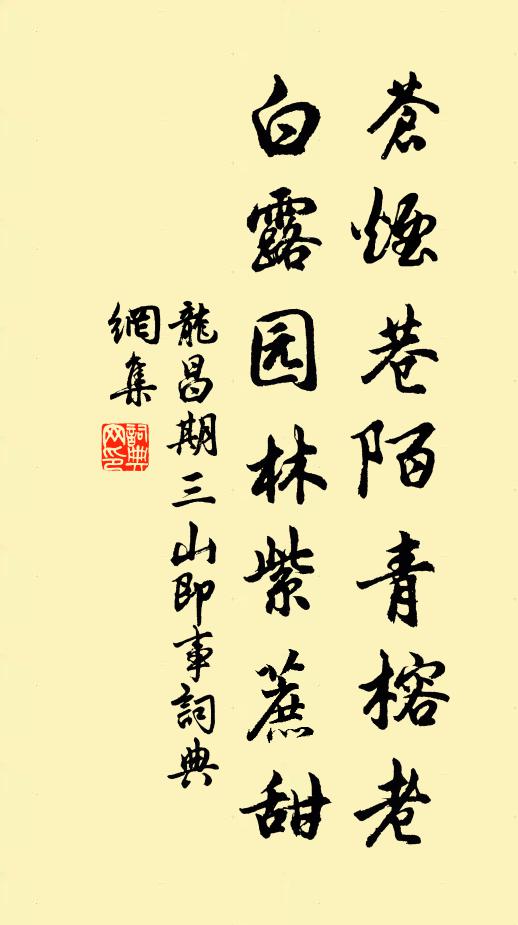 蒼煙巷陌青榕老
白露园林紫蔗甜
龍昌期三山即事詞典
網集
詞典
网印